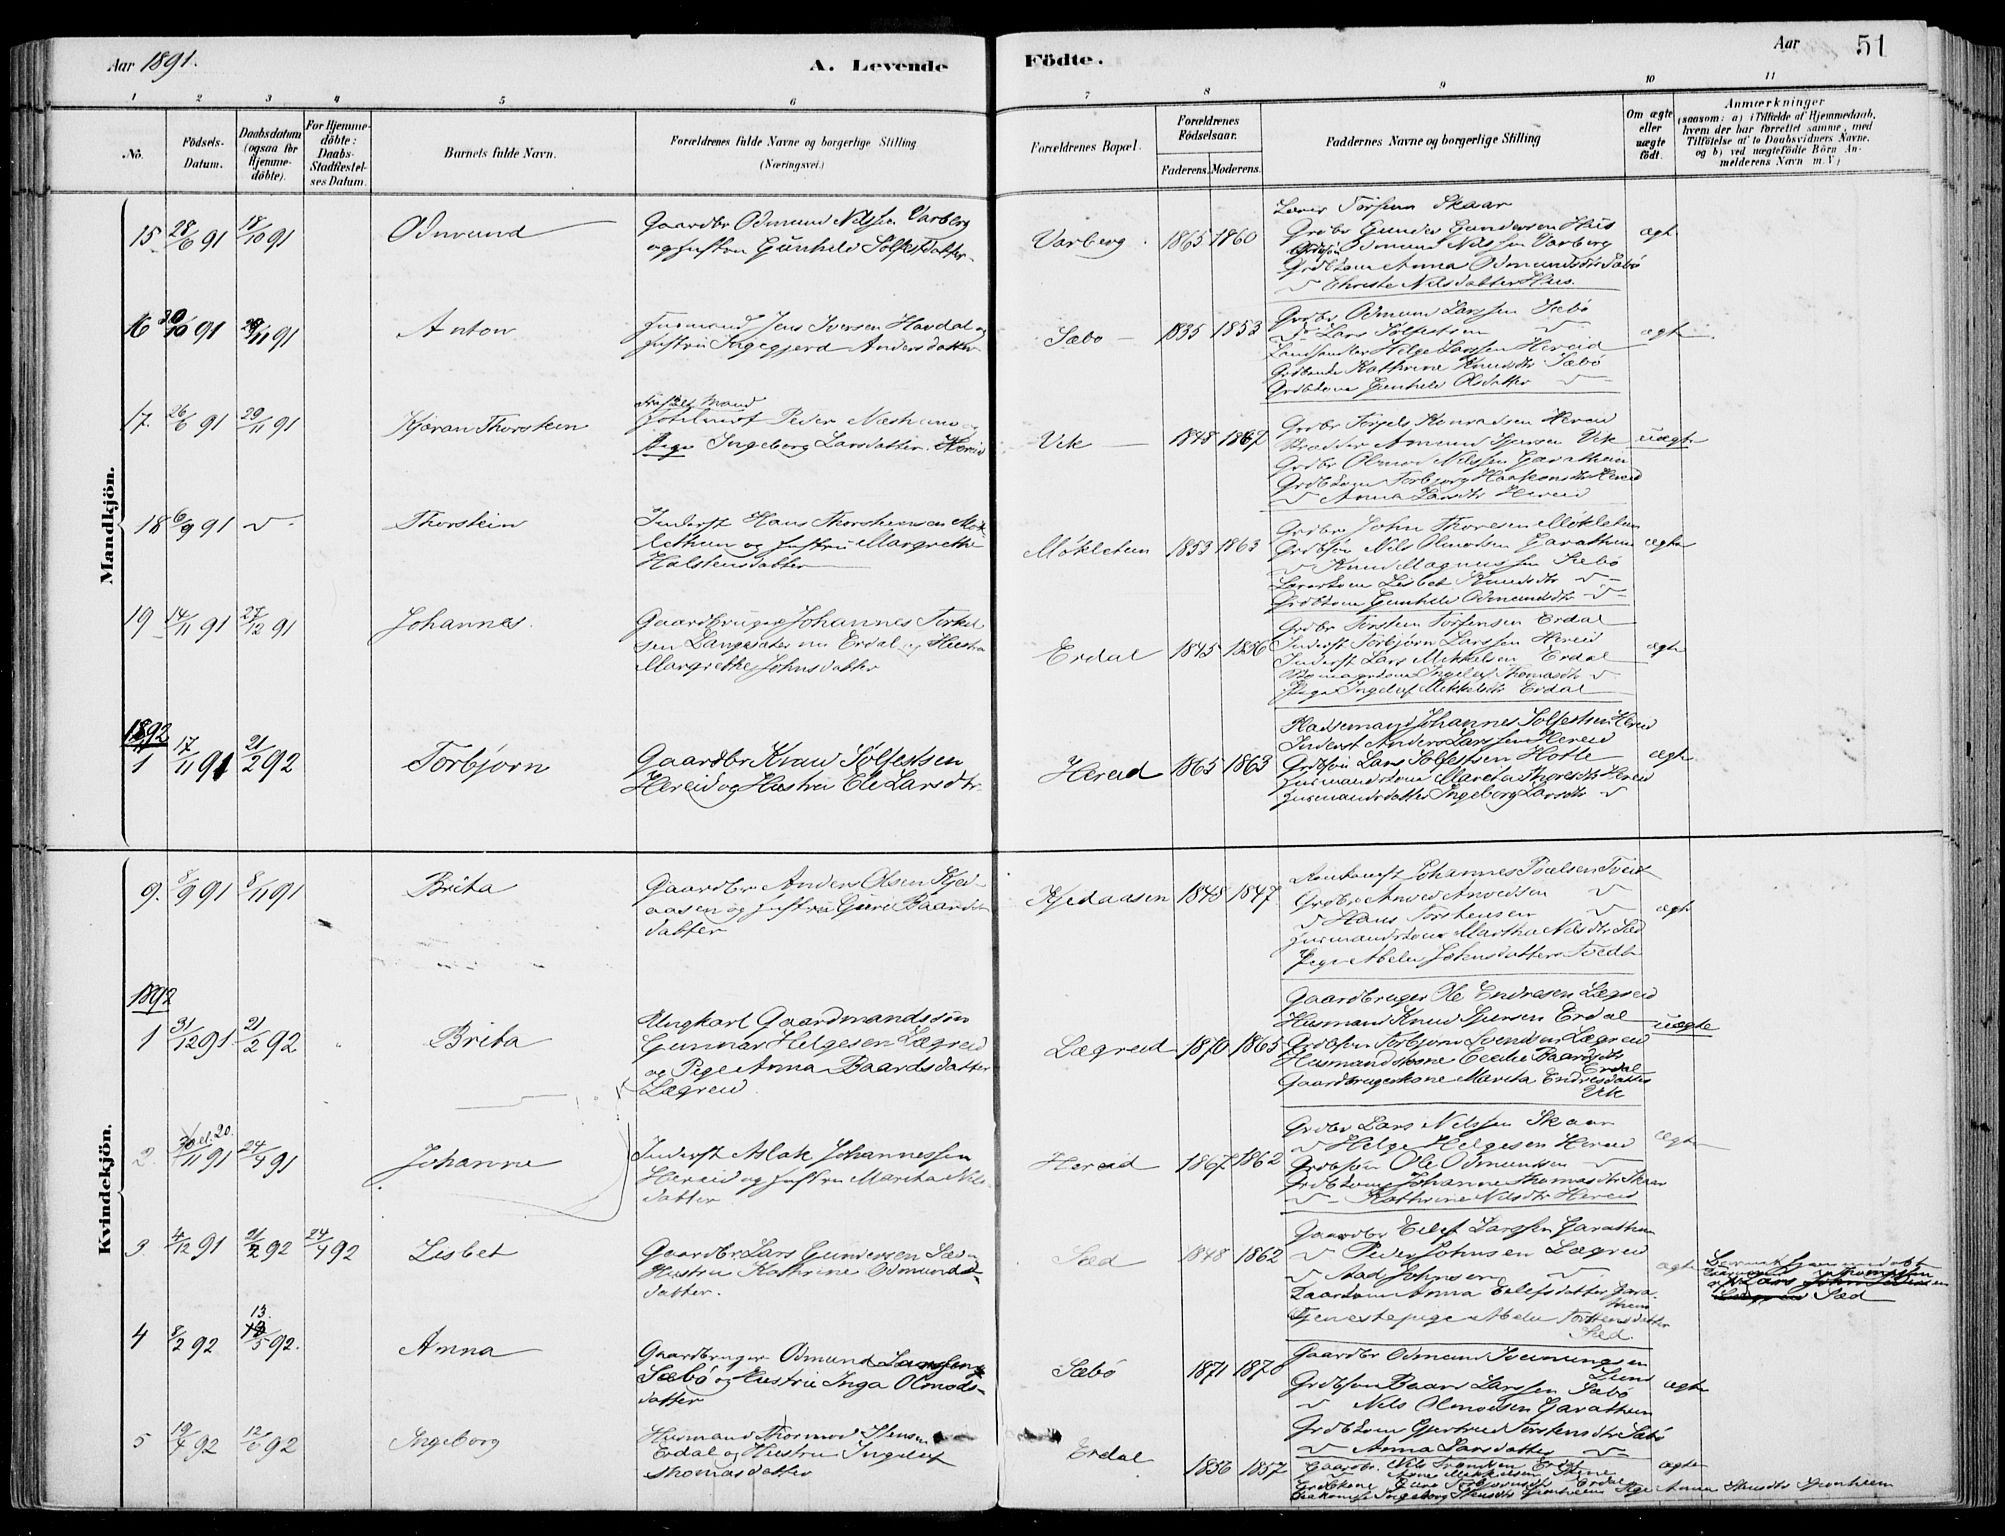 Aar 1891.
A. Levende
Födte.
Aar
51
1 2 3 4 5 6 7 8 9 10 11
No.
Födsels-
Datum.
Daabsdatum
(ogsaa for
Hjemme-
döbte).
For Hjemme-
döbte:
Daabs-
Stadfæstel-
ses Datum.
Barnets fulde Navn.
Forældrenes fulde Navne og borgerlige Stilling
(Næringsvei.)
Forældrenes Bopæl.
Forældrenes
Födselsaar.
Faderens. Moderens.
Faddernes Navne og borgerlige Stilling
Om ægte
eller
uægte
født.
Anmærkninger
(saasom: a) i Tilfælde af Hjemmedaab,
hvem der har forrettet samme, med
Tilföielse af to Daabsvidners Navne,
og b) ved uægtefödte Börn An-
melderens Navn m. V.)
Mandkjön.
15 28/6 91 18/10 91
Odmund
Gaardbr Odmund Nilssen Varberg
og Hustru Gunhild Solfestdatter
Varberg
1865 1860
Skaar
Grdbr Gunder Gundersen Hus
Odmund Nilssen Varberg
Anna Odmundsdtr Sæbö
Nilsdatter Hus.
ægte
16 91 91
Anton
Husmand Jens Iversen Havdal og
Hustru Ingegjerd Andersdatter
Sæbo
1835 1853
Grdbr Odmund Larssen Sæbö
Lars Solfestsen
Helge Larssen Hereid
Kathrine Knudsdtr Sæbö
Gunhild Olsdatter
ægte
17. 26/6 91 29/11 91
Kjøran Thorstein
Fraskilt Mand
Peder Næsheim og
Pige Ingeborg Larsdatter Hereid
Vik
1848 1867
Grdbr Torgels Konradsen Hereid
Amund Sjursen Vik
Grdbr Olmod Nilssen Garathun
Torbjorg Haakonsdtr Hereid
Anna Larsdtr Hereid
uægte
18 6/9 91
Thorstein
Inderst Hans Thorsteinsen Møk-
lethun og Hustru Margrethe
Halstensdatter
Møklethun
1853 1863
Grdbr John Thoresen Møklethun
Nils Olmodsen Garathun
Knud Magnussen Sæbö
Lisbet Knudsdtr
Gunhild Odmundsdtr
ægte
19 14/11 91 27/12 91
Johannes.
Gaardbruger Johannes Torkel-
sen Langesæter nu Erdal og Hustru
Margrethe Johnsdatter
Erdal
1845 1856
Grdbr Torstein Torstensen Erdal
Inderst Torbjørn Larssen Hereid
Inderst Lars Mikkelsen Erdal
Ingeleif Thomasdtr
Pige Ingeleif Mikkelsdtr Erdal
ægte
1892
1 17/11 91 21/2 92
Torbjørn
Gaardbr Knud Solfestsen
Hereid og Hustru Eli Larsdtr.
Hereid
1865 1863
Pladsemand Johannes Solfestsen Hereid
Inderst Anders Larssen Hereid
Grdbsön Lars Solfestsen Hotle
Husmandskone Marita Thoresdtr Hereid
Husmandsdatter Ingeborg Larsdtr
ægte
Kvindekjön.
9. 8/9 91 8/11 91
Brita
Gaardbr Anders Olsen Kjed-
aasen og Hustru Guri Baards-
datter
Kjedaasen
1848 1847
Johannes Tveit
Grdbr Anved Anvedsen
Hans Torstensen
Husmandskone Martha Nilsdtr Sæd
Pige Abelu Johnsdatter Tveit
ægte
1892
1 31/12 91 21/2 92
Brita
Ungkarl Gaardmandssön
Gunnar Helgesen Lægreid
og Pige Anna Baardsdatter
Lægreid
Lægreid
1870 1865
Gaardbruger Ole Endresen Lægreid
Husmand Knud Sjursen Erdal
Grdbsøn Torbjørn Svendsen Lægreid
Husmandskone Cecilie Baardsdtr
Erdal
Gaardbrugerskone Marita Endresdatter
Vik
uægte
2. 30 el. 20./11 91 24/3 91
Johanne
Inderst Aslak Johannessen
Hereid og Hustru Marita Nils-
datter
Hereid
1867 1862
Grdbr Lars Nilssen Skaar
Helge Helgesen Hereid
Grdbsön Ole Odmundsen
Johanne Thomasdtr Skaar
Kathrine Nilsdtr Hereid
ægte
3. 4/12 91 21/2 92 24/4 92
Lisbet
Gaardbr Lars Gundersen Sæd og
Hustru Kathrine Odmunds-
datter.
Sæd
1848 1862
Gaardbr Eilef Larssen Garathun
Peder Johnsen Lægreid
Aad Johnsen
Anna Eilefsdatter Gara-
thun
Tjenestepige Abelu Torstensdatter
Sæd.
ægte
Lars
Sæd
4 8/2 92 13/5 92.
Anna
Gaardbruger Odmund Larssen
Sæbö og Hustru Inga Olmods-
datter
Sæbö
1871 1870
Gaardbr Odmund Sveinungsen
Lund
Grdbsøn Baard Larssen Sæbö
Nils Olmodsen Garathun
Gjertrud Torstensdtr Sæbö
Anna Larsdatter
ægte
5 19/4 92 12/6 92
Ingeborg
Husmand Thormod Stensen
Erdal og Hustru Ingeleif
Thomasdatter
Erdal
1856 1857
Gaardbr. Nils Erdal
Mikkelsen
Guro Erdal
Ingeborg Pige Anna
ægte